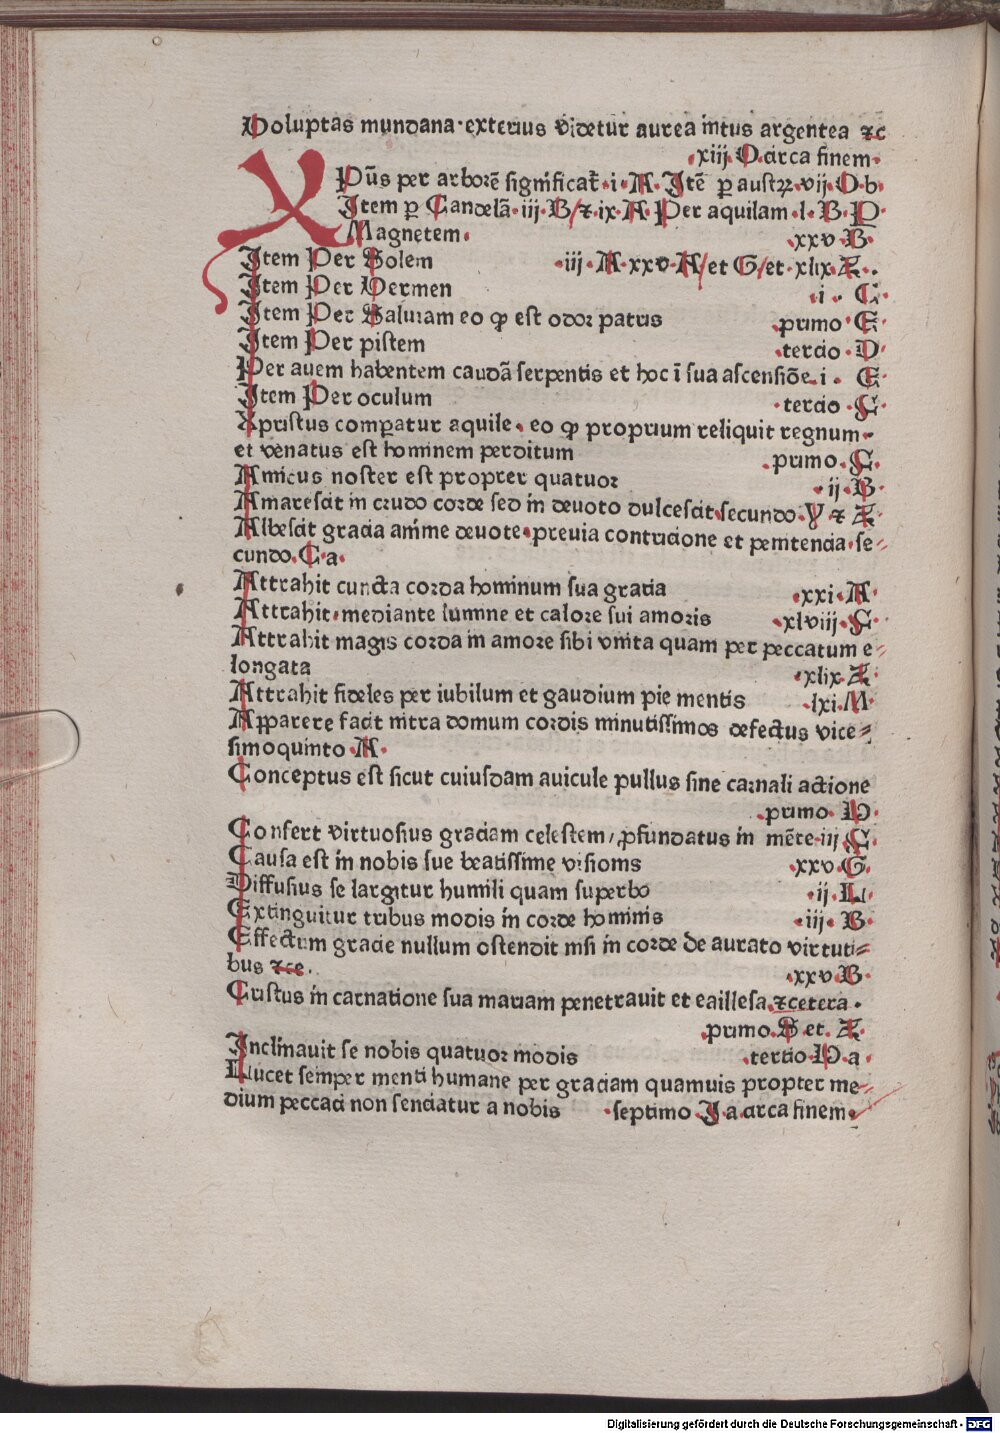 Voluptas mundana·exterius videtur aurea intus argentea ⁊c
·xiij·O·circa finem·
XPūs per arborē significat̄·i·A·Itē ꝑ austꝝ·vij·O·b·
Item ꝑ Candelā·iij·B/⁊·ix·A·Per aquilam·l·B·P·
Magnetem· xxv·B·
Item Per Solem ·iij·A·xxv·A/et G/et·xlix·Z··
Item Per Vermen ·i··C·
Item Per Saliuam eo ꝙ est odor patris ·primo·E·
Item Per pistem ·tercio·D·
Per auem habentem caudā serpentis et hoc ī sua ascensiōe·i· E·
Item Per oculum ·tercio·C·
Xpristus comꝑatur aquile· eo ꝙ proprium reliquit regnum·
et venatus est hominem perditum ·primo·C·
Amicus noster est propter quatuor ·ij·B·
Amarescit in crudo corde sed in deuoto dulcescit·secundo·Y·⁊ Z·
Albescit gracia anime deuote·preuia contricione et penitencia·se⸗
cundo·C·a·
Attrahit cuncta corda hominum sua gratia ·xxi·A·
Attrahit·mediante lumine et calore sui amoris ·xlviij·C·
Attrahit magis corda in amore sibi vnita quam per peccatum e⸗
longata ·xlix·Z·
Attrahit fideles per iubilum et gaudium pie mentis ·lxi·M·
Aꝑparere facit intra domum cordis minutissimos defectus vice⸗
simoquinto·A·
Conceptus est sicut cuiusdam auicule pullus sine carnali actione
·primo·D·
Confert virtuosius graciam celestem/ꝓfundatus in mēte·iij·C·
Causa est in nobis sue beatissime visionis ·xxv·G·
Diffusius se largitur humili quam superbo ·ij·L·
Extinguitur tribus modis in corde hominis ·iij·B·
Effectum gracie nullum ostendit nisi in corde de aurato virtuti⸗
bus ⁊ce·· ·xxv·B·
Cristus in carnatione sua mariam penetrauit et eaillesa ⁊cetera·
·primo·S·et·Z·
Inclinauit se nobis quatuor modis ·tertio·D·a·
Lucet semper menti humane per graciam quamuis propter me⸗
dium peccati non senciatur a nobis ·septimo·I·a·circa finem·
Digitalisierung gefördert durch die Deutsche Forschungsgemeinschaft - DFG